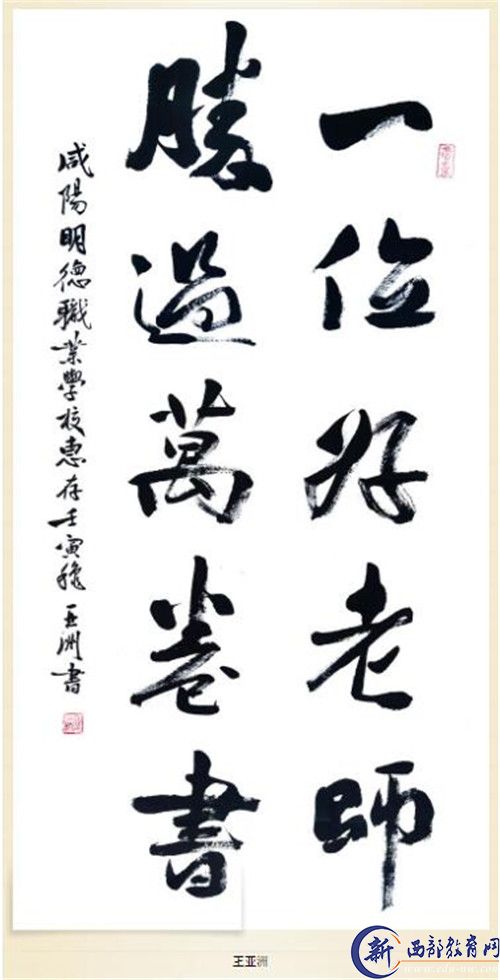 一位好老師
勝過萬卷書
咸陽明德職業學校惠存壬寅秋亞洲書
王亚洲
新西部教育网